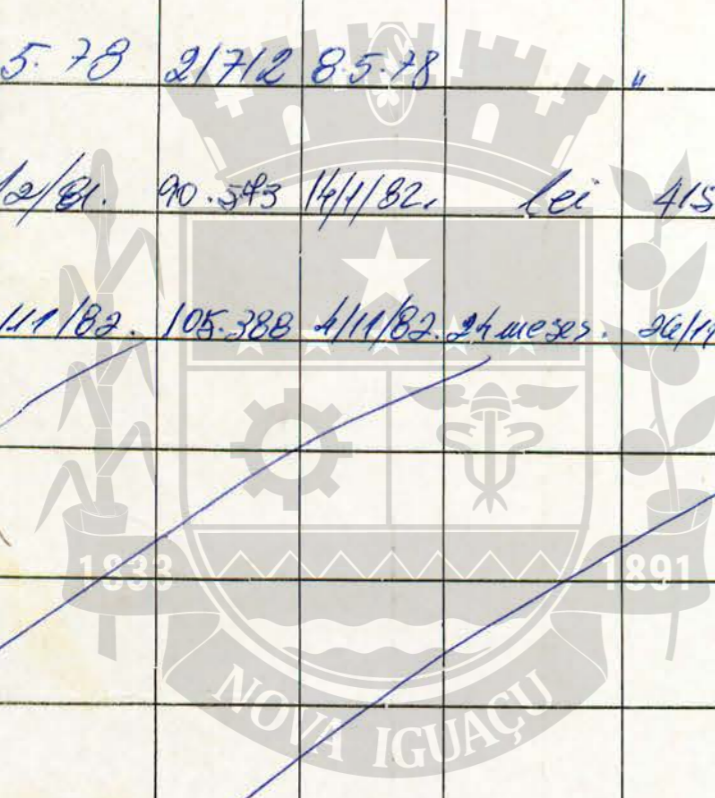 5.78 21712 8.5.78 "
12/81. 90.573 14/1/82. lei 415
11/82. 105.388 4/11/82. 24 meses. 26/14
1833 1891
NOVA IGUAÇU